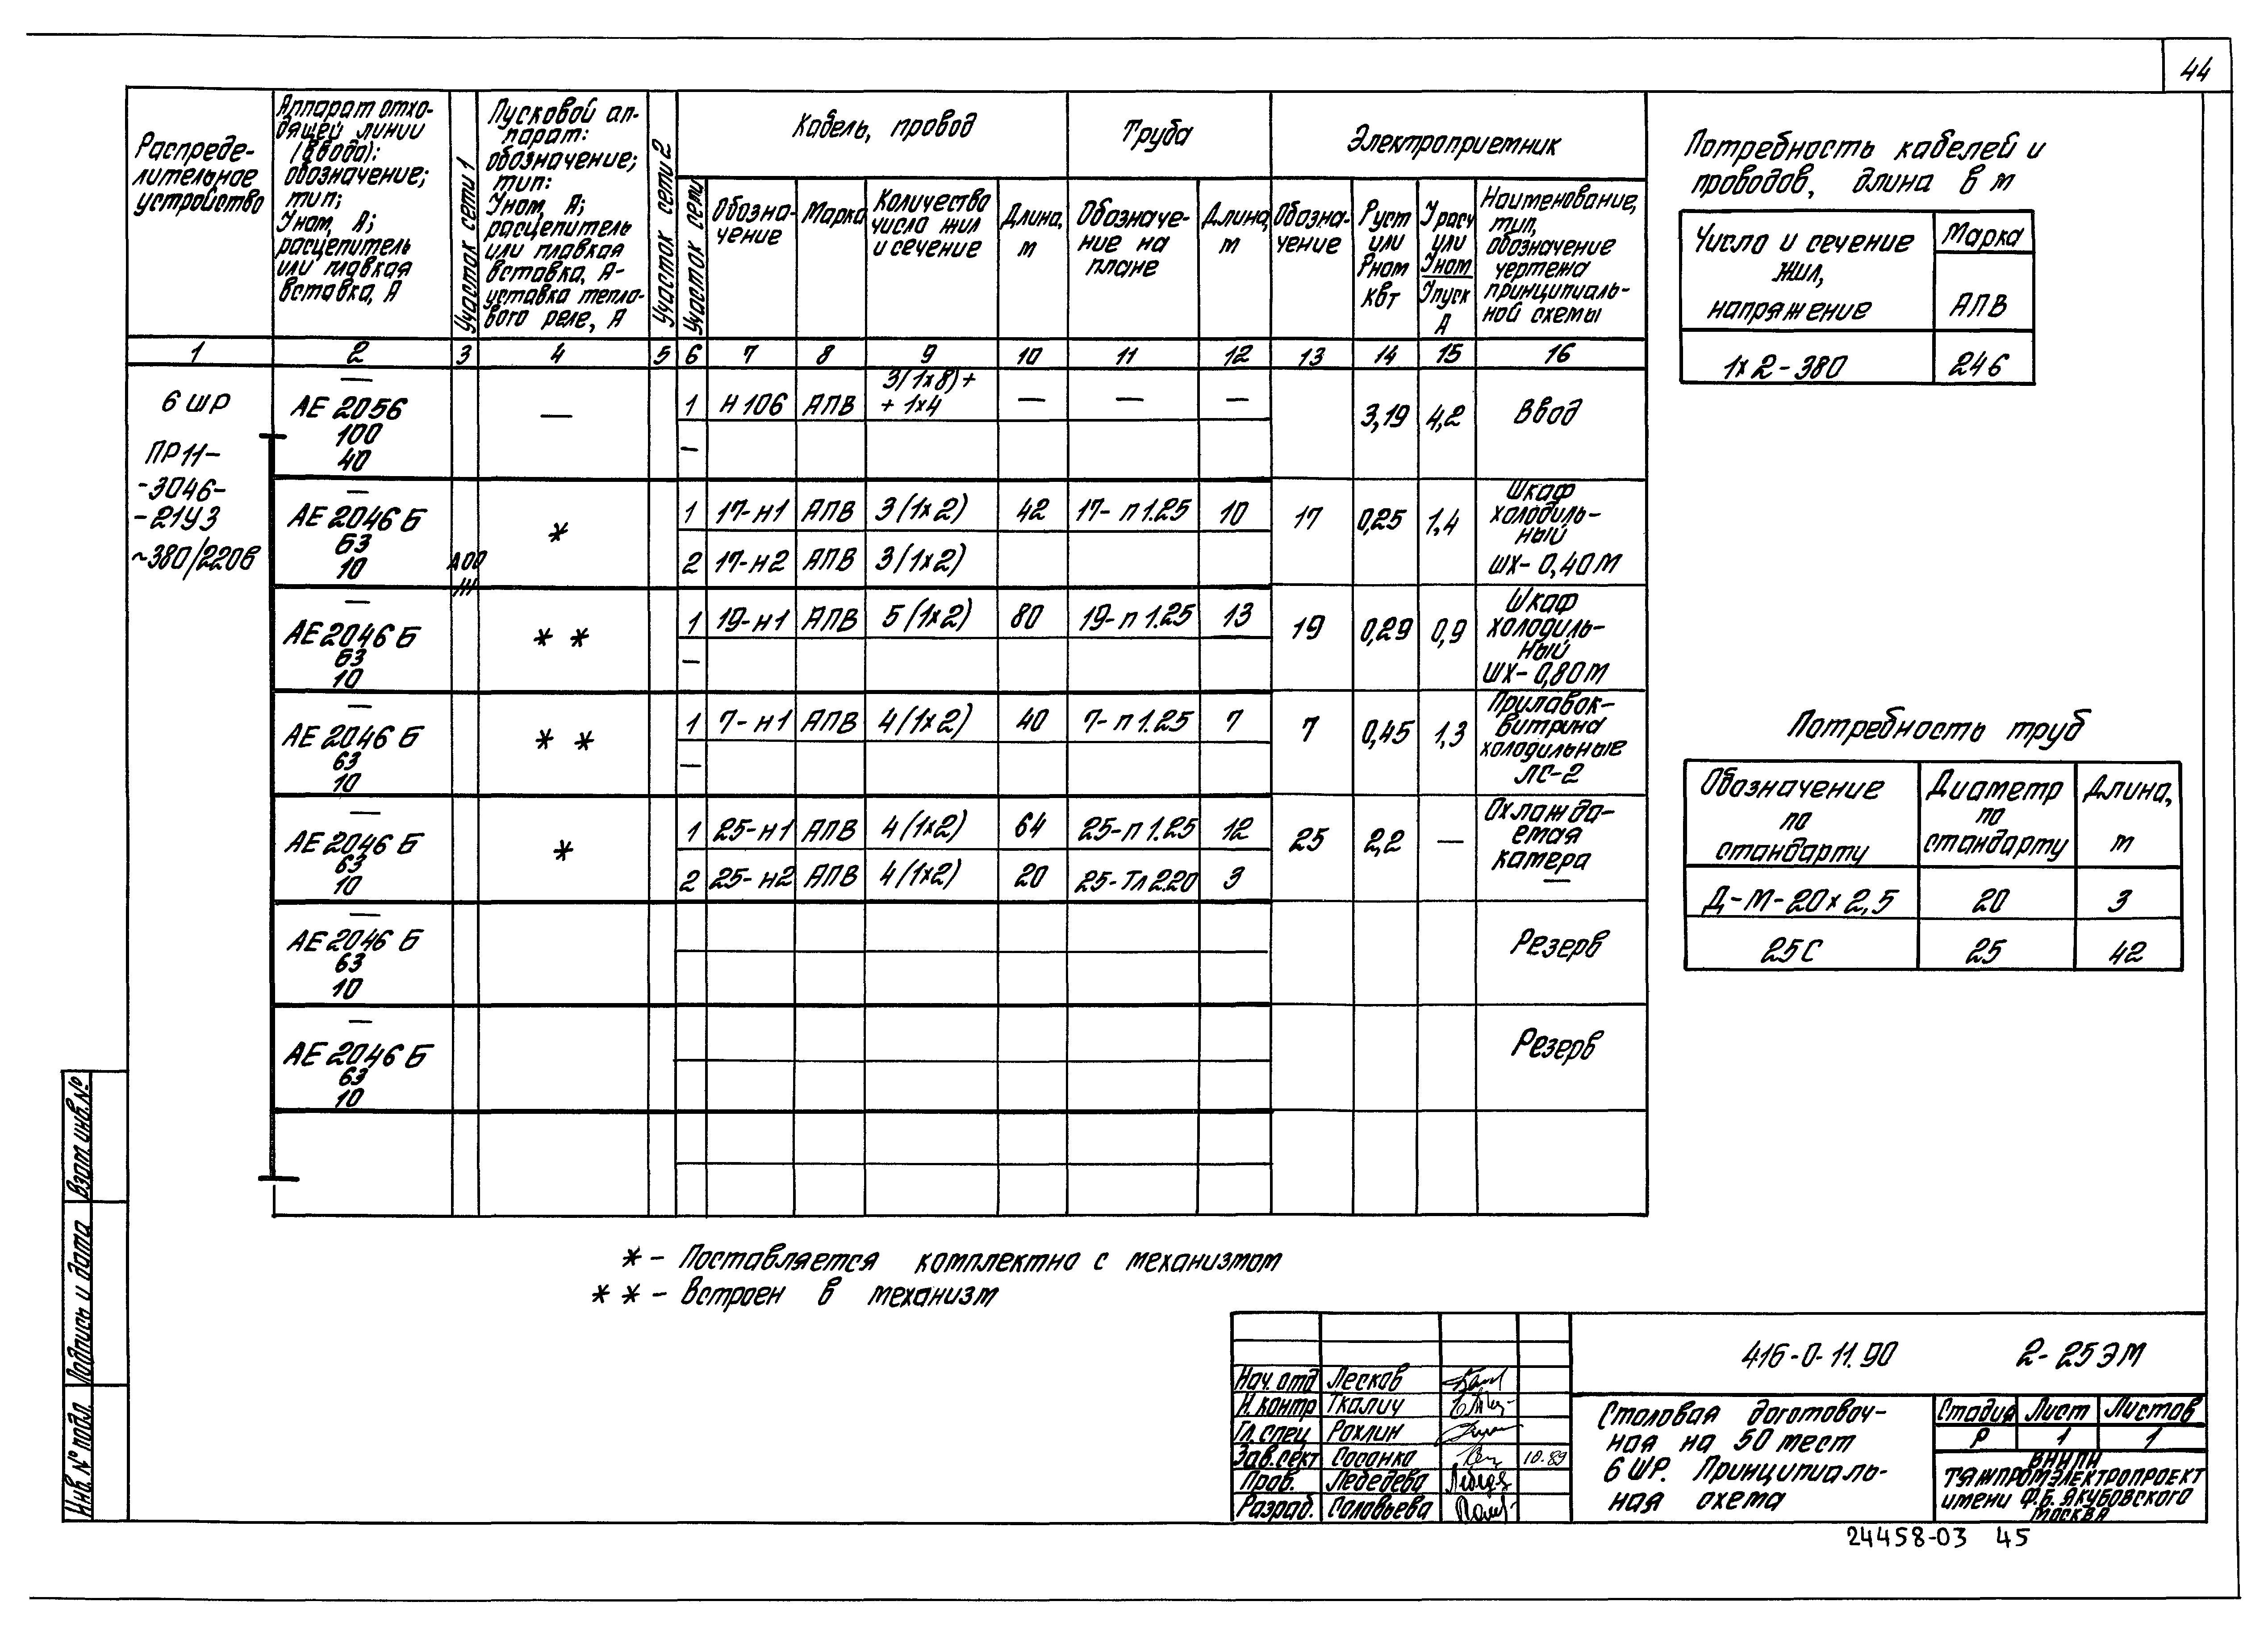 44
Распреде-
лительное
устройство
Аппарат отхо-
дящей линии
(ввода):
обозначение;
тип;
Iном, А;
расцепитель
или плавкая
вставка, А
Участок сети 1
Пусковой ап-
парат:
обозначение;
тип:
Iном, А;
расцепитель
или плавкая
вставка, А-
уставка тепло-
вого реле, А
Участок сети 2
Участок сети
Кабель, провод
Обозна-
чение
Марка
Количество
числа жил
и сечение
Длина,
м
Труба
Обозначе-
ние на
плане
Длина,
м
Электроприемник
Обозна-
чение
Руст
или
Рном
квт
Iрасч
или
Iном
Iпуск
А
Наименование,
тип,
обозначение
чертежа
принципиаль-
ной схемы
1 2 3 4 5 6 7 8 9 10 11 12 13 14 15 16
6 ШР
ПР11-
-3046-
-21У3
~380/220в
—
АЕ 2056
100
40
—
1 Н106 АПВ 3(1х8)+
+ 1х4
— — —
3,19 4,2 Ввод
—
—
АЕ 2046 Б
63
10
*
1 17-н1 АПВ 3(1х2) 42 17-п1.25 10
2 17-н2 АПВ 3(1х2)
17 0,25 1,4
Шкаф
холодиль-
ный
ШХ-0,40М
—
АЕ 2046 Б
63
10
* *
1 19-н1 АПВ 5(1х2) 80 19-п1.25 13
—
19 0,29 0,9
Шкаф
холодиль-
ный
ШХ-0,80М
—
АЕ 2046 Б
63
10
* *
1 7-н1 АПВ 4(1х2) 40 7-п1.25 7
—
7 0,45 1,3
Прилавок-
витрина
холодильные
ЛС-2
—
АЕ 2046 Б
63
10
*
1 25-н1 АПВ 4(1х2) 64 25-п1.25 12
2 25-н2 АПВ 4(1х2) 20 25-Тл2.20 3
25 2,2 —
Охлажда-
емая
камера
—
—
АЕ 2046 Б
63
10
Резерв
—
АЕ 2046 Б
63
10
Резерв
* - Поставляется комплектно с механизмом
* * - Встроен в механизм
Потребность кабелей и
проводов, длина в м
Число и сечение
жил,
напряжение
Марка
АПВ
1х2-380 246
Потребность труб
Обозначение
по
стандарту
Диаметр
по
стандарту
Длина,
м
Д-М-20х2,5 20 3
25С 25 42
Взам инв. №
Подпись и дата
Инв. № подл.
Нач. отд Лесков
Н. контр Ткалич
Гл. спец Рохлин
Зав. сект Сосанко 10.89
Пров. Лебедева
Разраб. Соловьева
416-0-11.90 2-25ЭМ
Столовая доготовоч-
ная на 50 мест
6 ШР. Принципиаль-
ная схема
Стадия Лист Листов
Р 1 1
ВНИПИ
ТЯЖПРОМЭЛЕКТРОПРОЕКТ
имени Ф.Б. Якубовского
Москва
24458-03 45